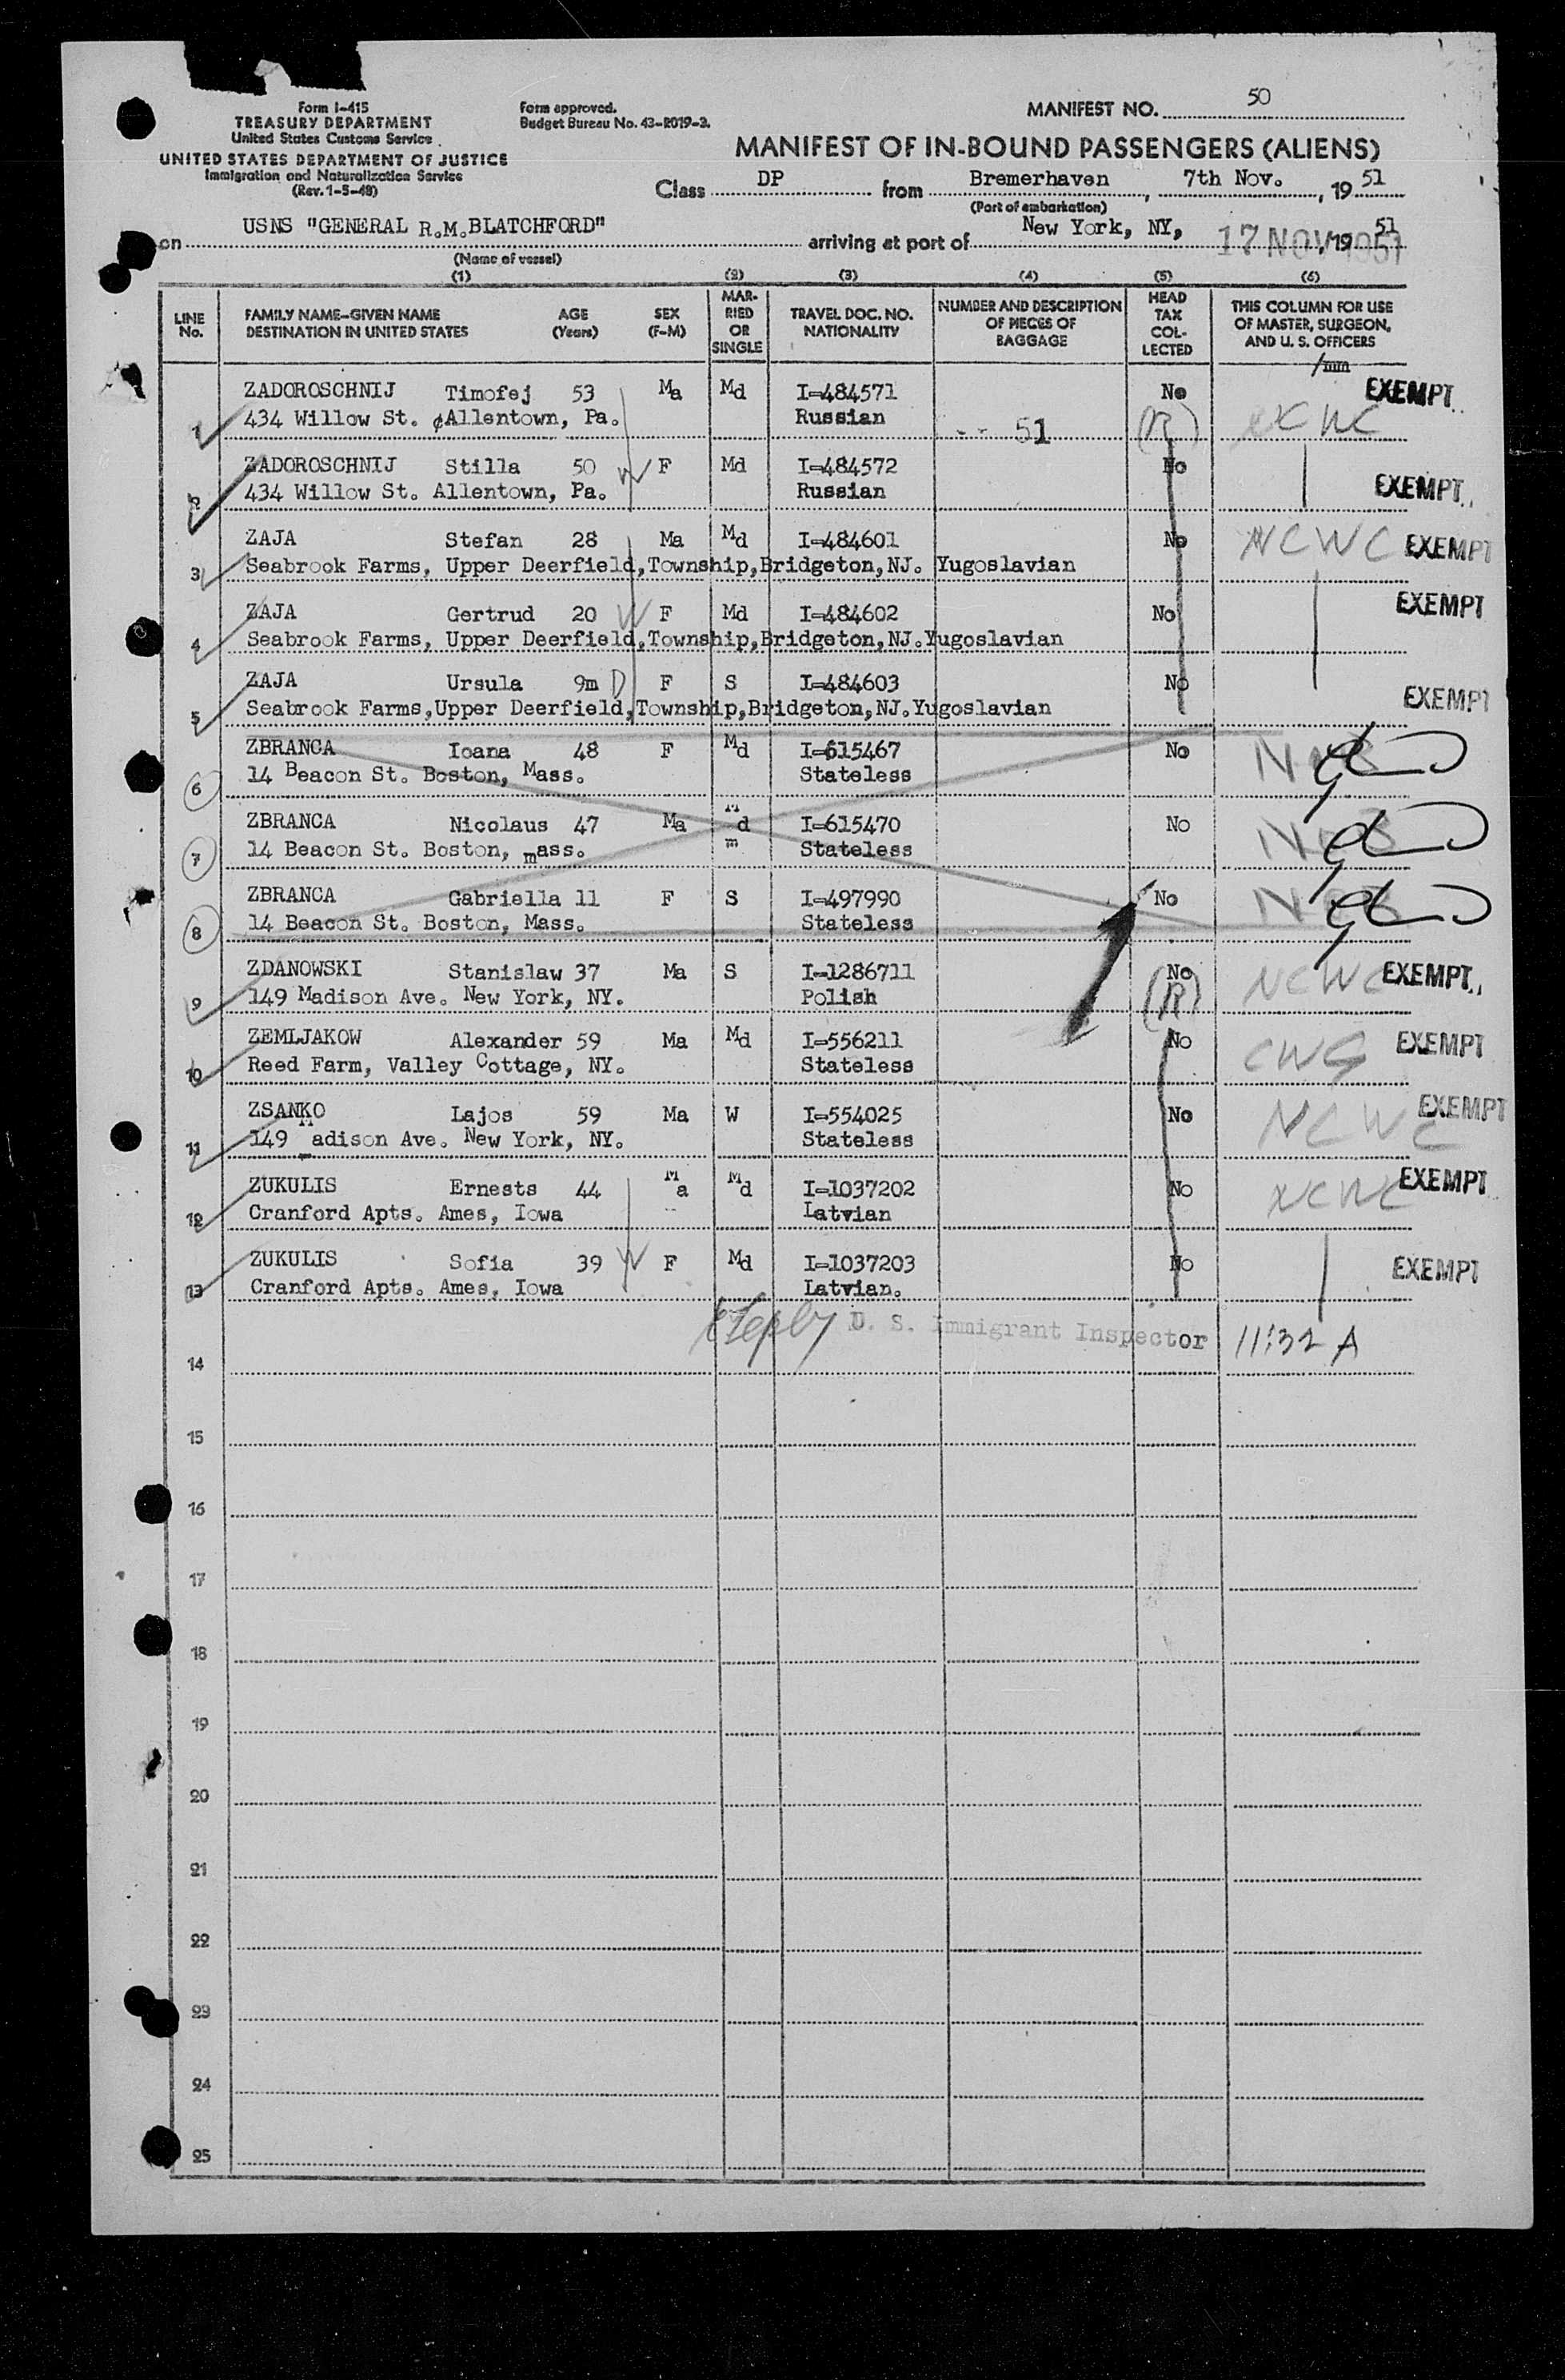 Form I-415
TREASURY DEPARTMENT
United States Customs Service
UNITED STATES DEPARTMENT OF JUSTICE
Immigration and Naturalization Service
(Rev. 1-5-48)
Form approved.
Budget Bureau No. 43-R019-3.
MANIFEST NO. 50
MANIFEST OF IN-BOUND PASSENGERS (ALIENS)
Class DP from Bremerhaven, 7th Nov., 19 51
(Port of embarkation)
on USNS "GENERAL R.M.BLATCHFORD" arriving at port of New York, NY, 17 NOV 1951, 19 51
(Name of vessel)
(1) (2) (3) (4) (5) (6)
LINE No. FAMILY NAME-GIVEN NAME DESTINATION IN UNITED STATES AGE (Years) SEX (F-M) MAR-RIED OR SINGLE TRAVEL DOC. NO. NATIONALITY NUMBER AND DESCRIPTION OF PIECES OF BAGGAGE HEAD TAX COL-LECTED THIS COLUMN FOR USE OF MASTER, SURGEON, AND U. S. OFFICERS
ZADOROSCHNIJ Timofej 53 Ma Md I-484571 No EXEMPT
1 434 Willow St. Allentown, Pa. Russian 51 (R) NCWC
ZADOROSCHNIJ Stilla 50 W F Md I-484572 No
2 434 Willow St. Allentown, Pa. Russian EXEMPT
ZAJA Stefan 28 Ma Md I-484601 No NCWC EXEMPT
3 Seabrook Farms, Upper Deerfield,Township,Bridgeton,NJ. Yugoslavian
ZAJA Gertrud 20 W F Md I-484602 No EXEMPT
4 Seabrook Farms, Upper Deerfield,Township,Bridgeton,NJ.Yugoslavian
ZAJA Ursula 9m D F S I-484603 No EXEMPT
5 Seabrook Farms,Upper Deerfield,Township,Bridgeton,NJ.Yugoslavian
ZBRANCA Ioana 48 F Md I-615467 No
6 14 Beacon St. Boston, Mass. Stateless
ZBRANCA Nicolaus 47 Ma Md I-615470 No
7 14 Beacon St. Boston, mass. m Stateless
ZBRANCA Gabriella 11 F S I-497990 No
8 14 Beacon St. Boston, Mass. Stateless
ZDANOWSKI Stanislaw 37 Ma S I-1286711 No NCWC EXEMPT
9 149 Madison Ave. New York, NY. Polish (R)
ZEMLJAKOW Alexander 59 Ma Md I-556211 No CWS EXEMPT
10 Reed Farm, Valley Cottage, NY. Stateless
ZSANKO Lajos 59 Ma W I-554025 No NCWC EXEMPT
11 149 Madison Ave. New York, NY. Stateless
ZUKULIS Ernests 44 Ma Md I-1037202 No NCWC EXEMPT
12 Cranford Apts. Ames, Iowa Latvian
ZUKULIS Sofia 39 W F Md I-1037203 No EXEMPT
13 Cranford Apts. Ames, Iowa Latvian.
U. S. Immigrant Inspector 11:32 A
14
15
16
17
18
19
20
21
22
23
24
25